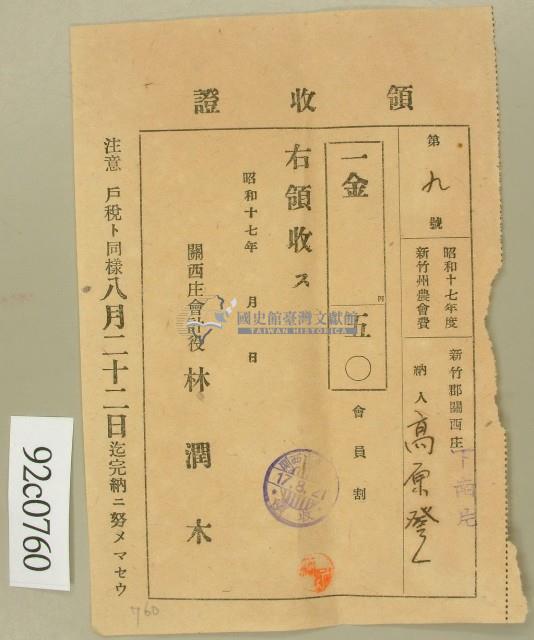 領收證
第九號
昭和十七年度
新竹州農會費
新竹郡關西庄
納人 高原登
一金 圓 五〇
會員割
右領收ス
昭和十七年 月 日
關西庄會計役 林潤木
關西
17.8.21
注意 戶稅ト同樣八月二十二日迄完納ニ努メマセウ
國史館臺灣文獻館
TAIWAN HISTORICA
92c0760
760